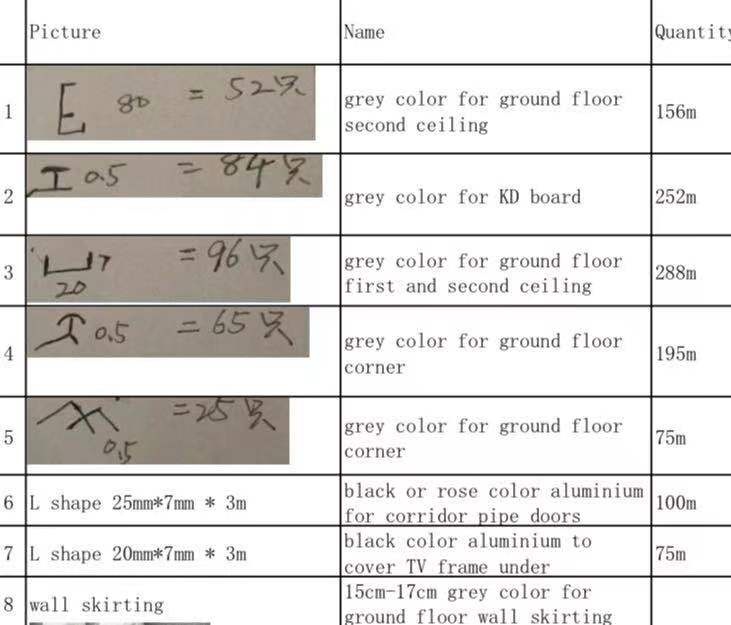 Picture Name Quantity
1 E 80 = 52只 grey color for ground floor second ceiling 156m
2 工 0.5 = 84只 grey color for KD board 252m
3 7 20 = 96只 grey color for ground floor first and second ceiling 288m
4 0.5 = 65只 grey color for ground floor corner 195m
5 0.5 = 25只 grey color for ground floor corner 75m
6 L shape 25mm*7mm * 3m black or rose color aluminium for corridor pipe doors 100m
7 L shape 20mm*7mm * 3m black color aluminium to cover TV frame under 75m
8 wall skirting 15cm-17cm grey color for ground floor wall skirting